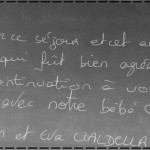 ce séjour et cet a
qui fût bien agré
continuation à vo
avec notre bébé
et Eva CIALDELLA